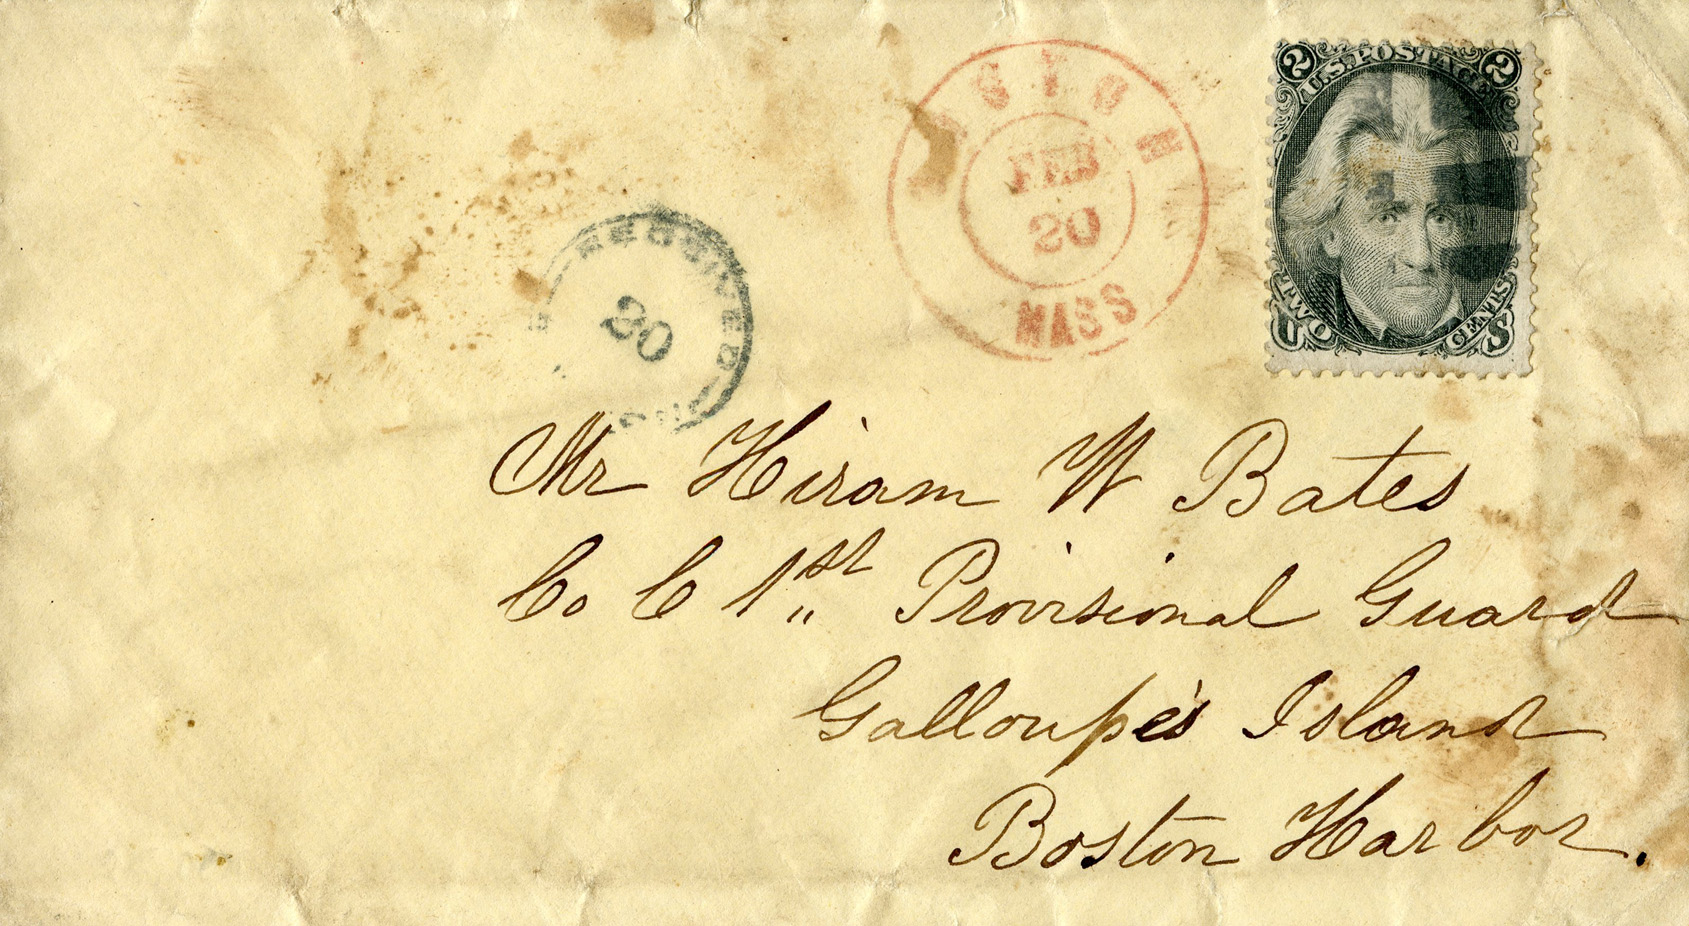 2 U.S. POSTAGE 2
TWO CENTS
U S
BOSTON
FEB
20
MASS
RECEIVED
20
Mr Hiram W Bates
Co C 1st Provisional Guard
Galloupe's Island
Boston Harbor.